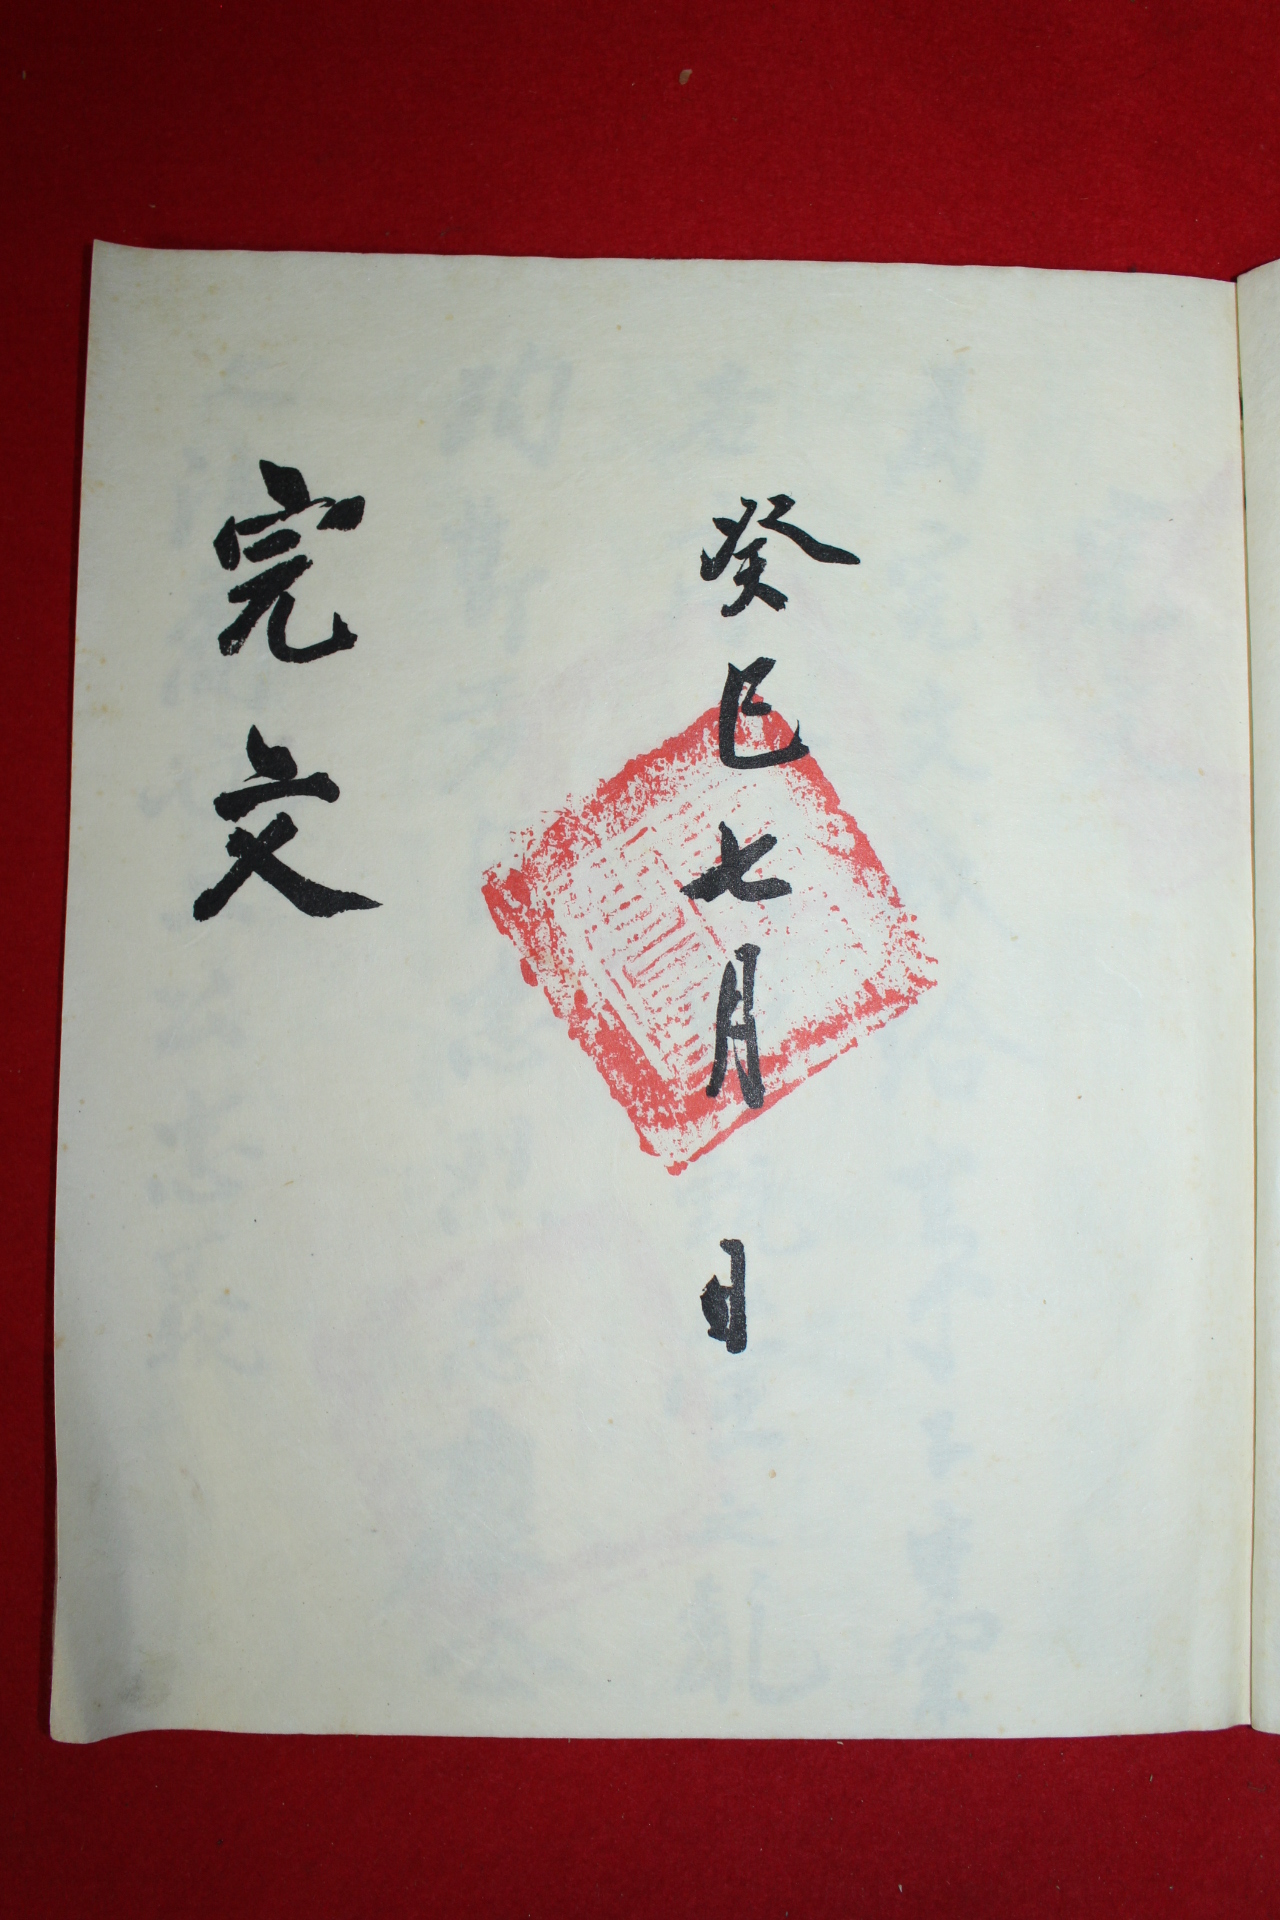 癸巳七月 日
完文